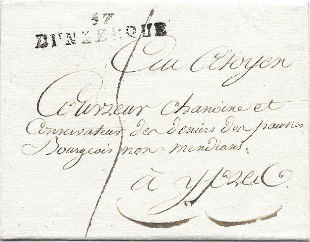 57
DUNKERQUE
Au Citoyen
Couvreur Chanoine et
Conservateur des deniers des pauvres
Bourgeois non-mendians.
à Ypres